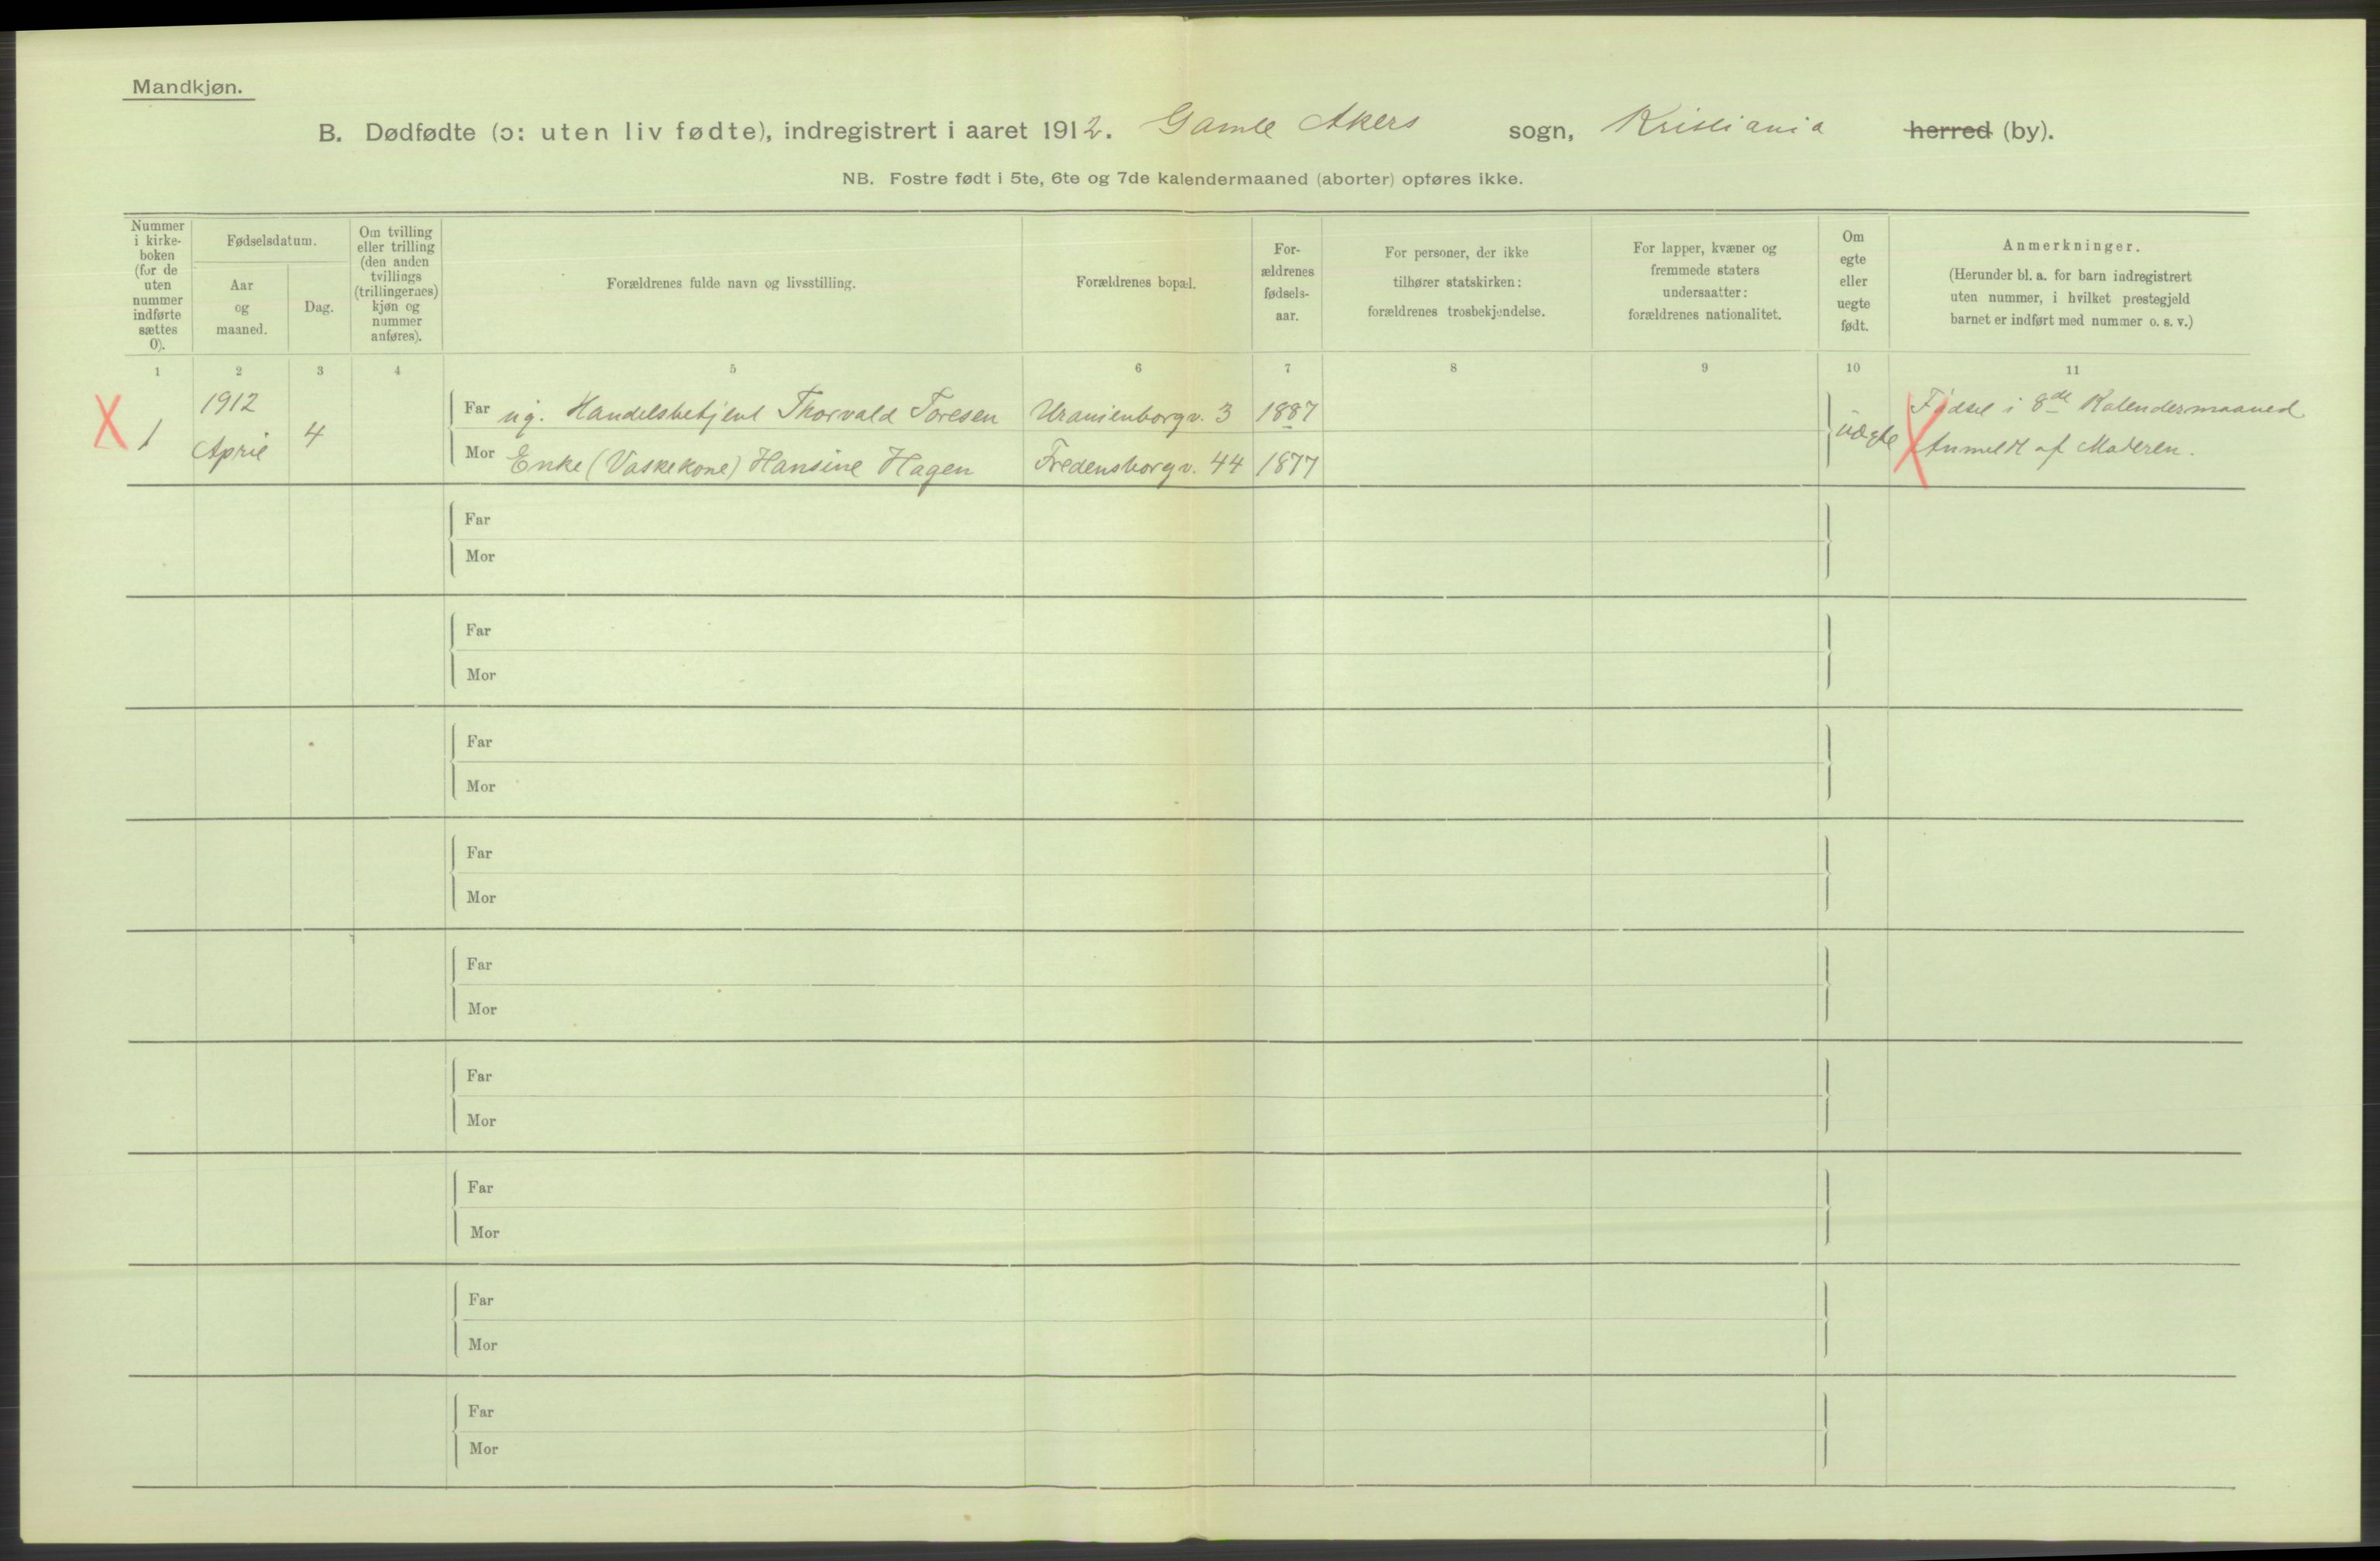 Mandkjøn.
B. Dødfødte (ɔ: uten liv fødte), indregistrert i aaret 1912. Gamle Akers sogn, Kristiania herred (by).
NB. Fostre født i 5te, 6te og 7de kalendermaaned (aborter) opføres ikke.
Nummer
i kirke-
boken
(for de
uten
nummer
indførte
sættes
0).
Fødselsdatum.
Aar
og
maaned.
Dag.
Om tvilling
eller trilling
(den anden
tvillings
(trillingernes)
kjøn og
nummer
anføres).
Forældrenes fulde navn og livsstilling.
Forældrenes bopæl.
For-
ældrenes
fødsels-
aar.
For personer, der ikke
tilhører statskirken:
forældrenes trosbekjendelse.
For lapper, kvæner og
fremmede staters
undersaatter:
forældrenes nationalitet.
Om
egte
eller
uegte
født.
Anmerkninger.
(Herunder bl. a. for barn indregistrert
uten nummer, i hvilket prestegjeld
barnet er indført med nummer o. s. v.)
1 2 3 4 5 6 7 8 9 10 11
1
1912
April
4
Far ug. Handelsbetjent Thorvald Toresen Uranienborgv. 3 1887
Mor Enke (Vaskekone) Hansine Hagen Fredensborgv. 44 1877
uægte
Fødsel i 8de Kalendermaaned
Anmeldt af Moderen.
Far
Mor
Far
Mor
Far
Mor
Far
Mor
Far
Mor
Far
Mor
Far
Mor
Far
Mor
Far
Mor